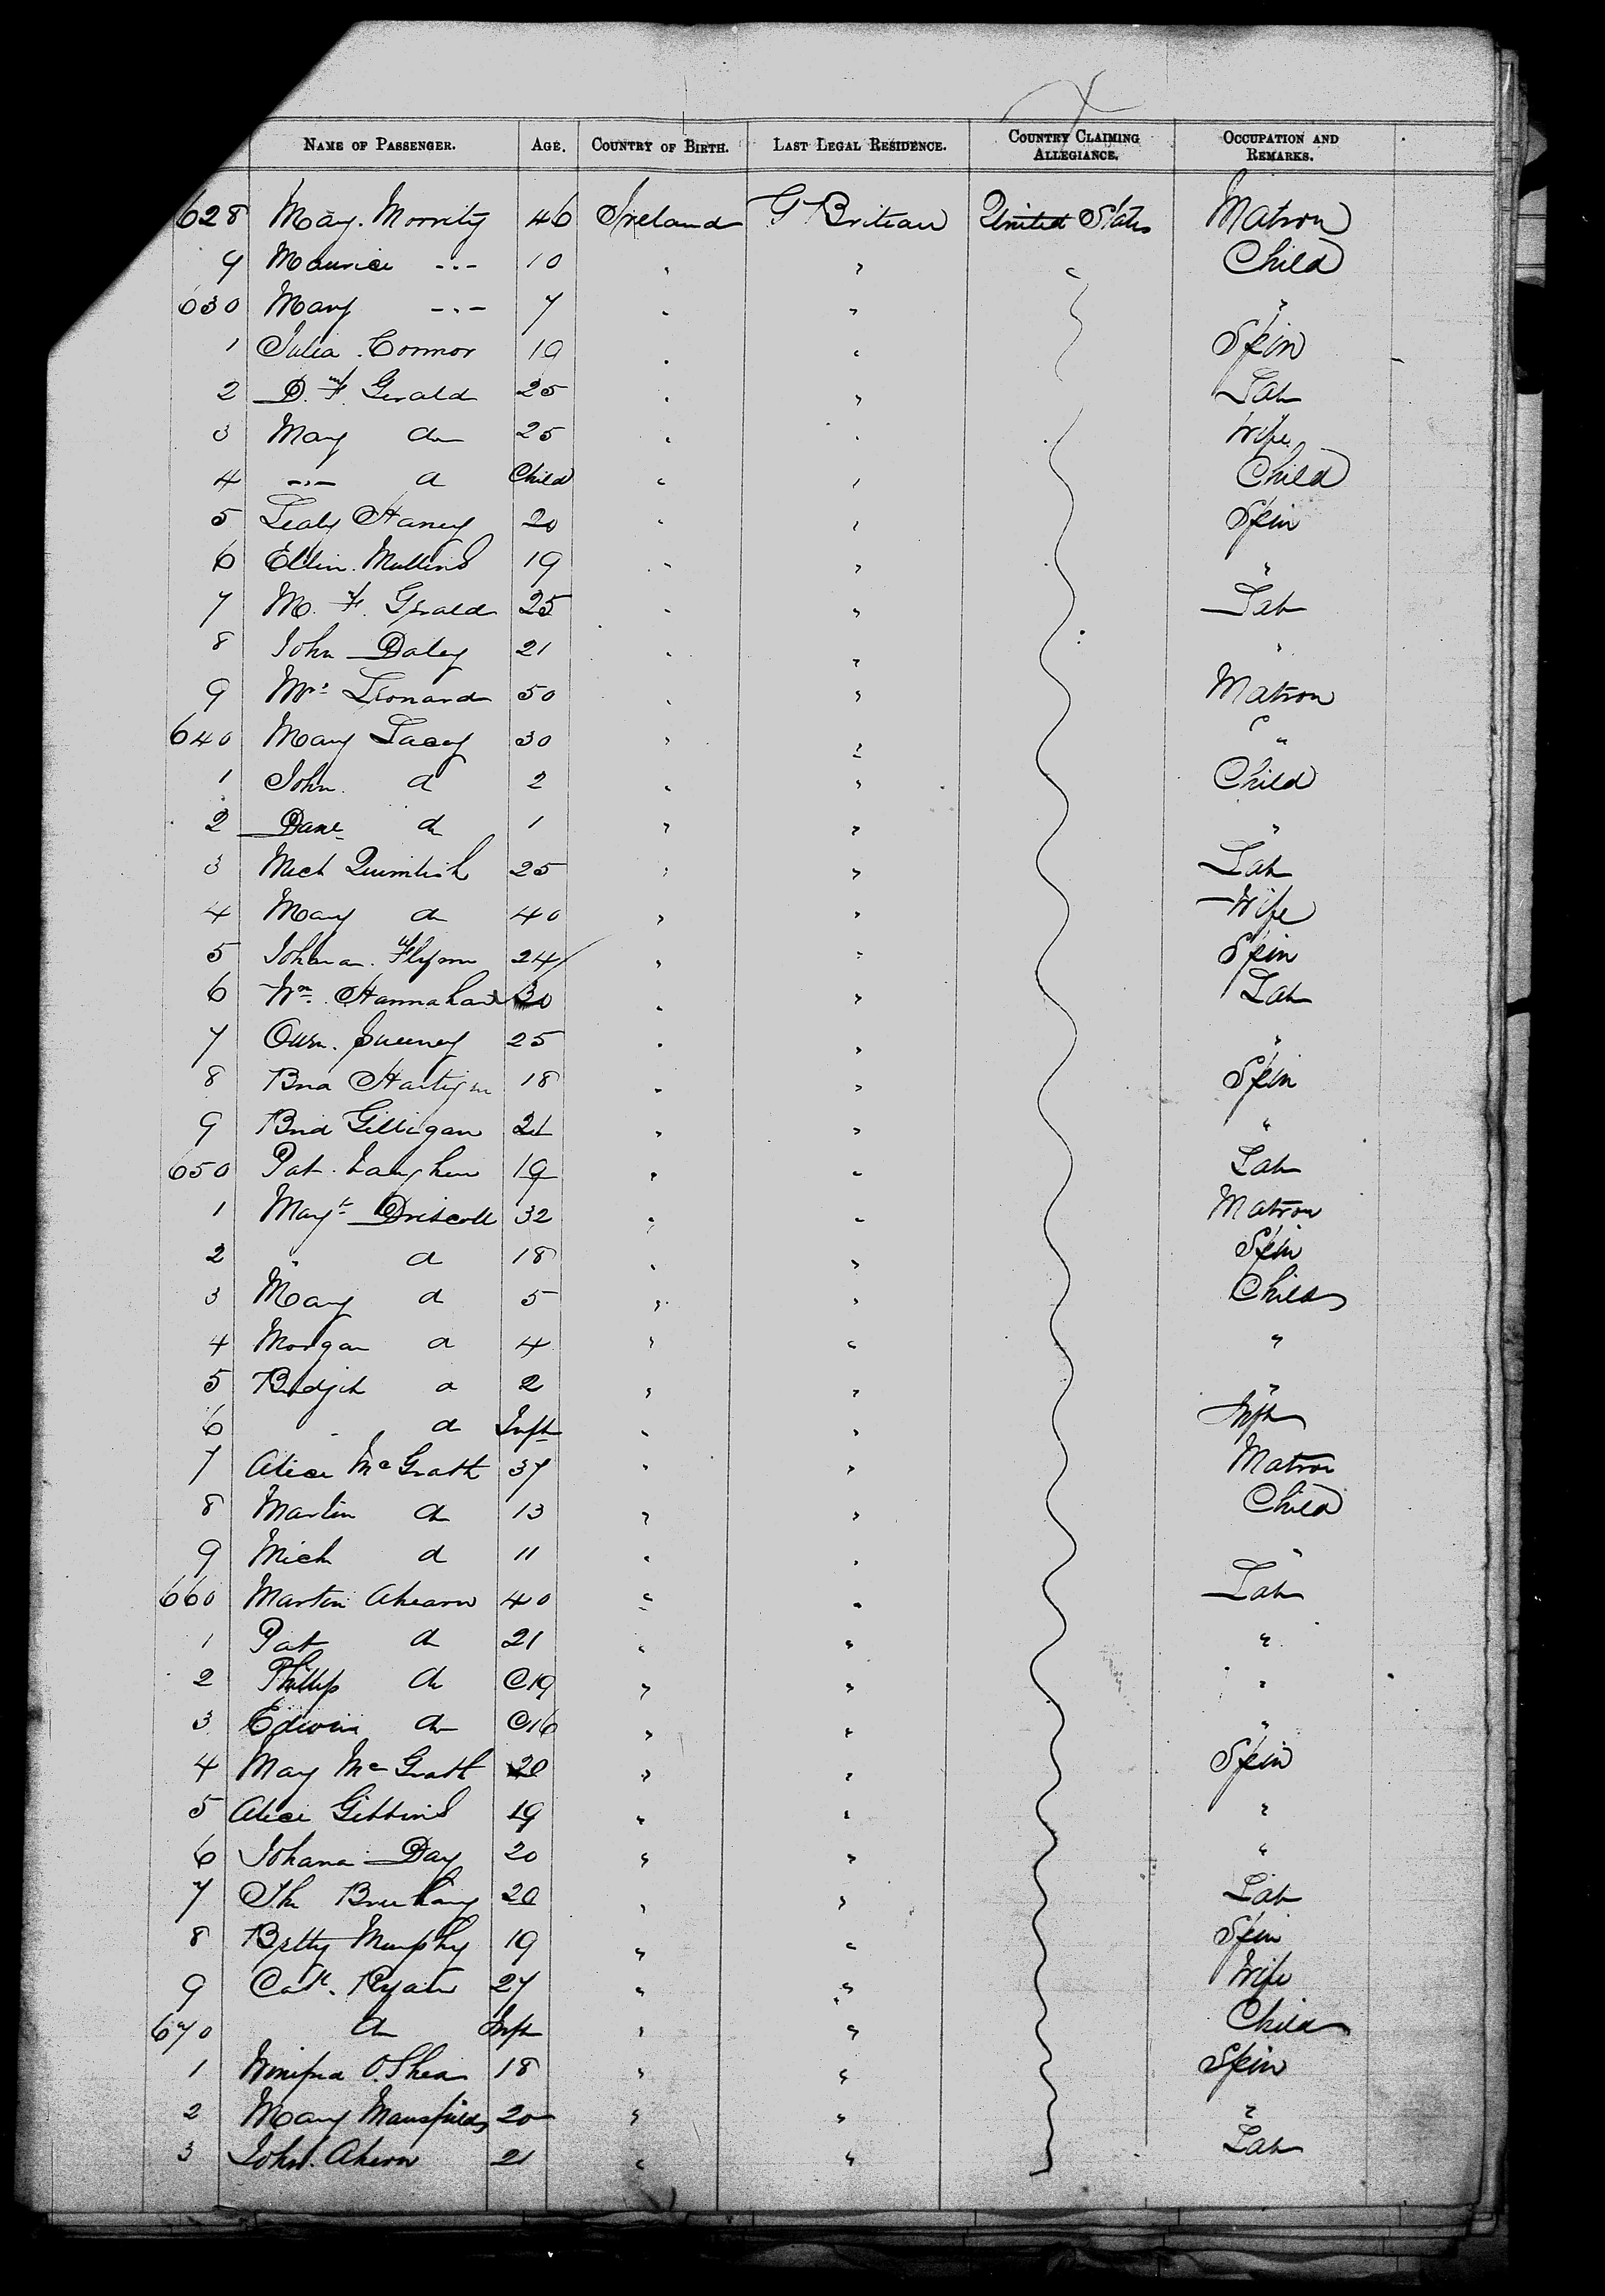 NAME OF PASSENGER. AGE. COUNTRY OF BIRTH. LAST LEGAL RESIDENCE. COUNTRY CLAIMING ALLEGIANCE. OCCUPATION AND REMARKS.
628 May. Morrity 46 Ireland G Britian United States Matron
9 Maurice -"- 10 " " " Child
630 Mary -"- 7 " " "
1 Julia Connor 19 " " Spin
2 D. F. Gerald 25 " " Lab
3 Mary do 25 " " Wife
4 -"- d Child " " Child
5 Haney 20 " " Spin
6 Ellin. Mullins 19 " " "
7 M. F. Gerald 25 " " Lab
8 John Daley 21 " " "
9 Mrs Leonard 50 " " Matron
640 Mary Lacey 30 " " "
1 John d 2 " " Child
2 Dane do 1 " " "
3 Mich 25 " " Lab
4 Mary do 40 " " Wife
5 Johana. Flynn 24 " " Spin
6 Wm. Hannahan 30 " " Lab
7 Owen. Sweeney 25 " " "
8 Brid Hartigan 18 " " Spin
9 Brid Gilligan 21 " " "
650 Pat. 19 " " Lab
1 Mayt Driscoll 32 " " Matron
2 " d 18 " " Spin
3 Mary d 5 " " Child
4 Morgan d 4 " " "
5 Bridjet d 2 " " "
6 " do Inft " " Inft
7 Alice McGrath 37 " " Matron
8 Martin do 13 " " Child
9 Mich d 11 " " "
660 Martin Ahearn 40 " " Lab
1 Pat do 21 " " "
2 Phillip do 19 " " "
3 Edwin do 16 " " "
4 May McGrath 20 " " Spin
5 Alice Gibbins 19 " " "
6 Johana Day 20 " " "
7 20 " " Lab
8 Betty Murphy 19 " " Spin
9 Cath. Ryan 27 " " Wife
670 do Inft " " Child
1 Winifred O.Shea 18 " " Spin
2 Mary Mansfield 20 " " "
3 John. Ahern 21 " " Lab